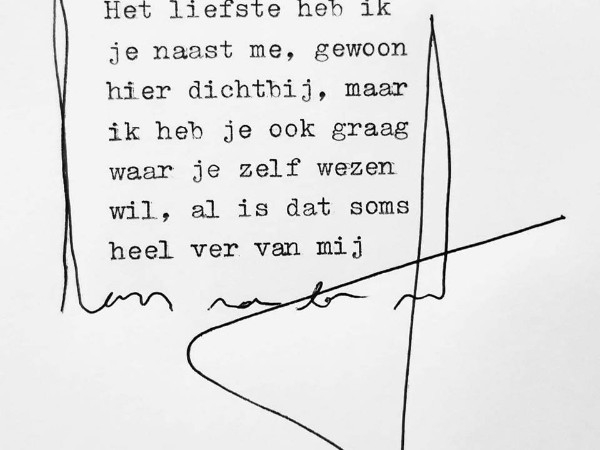 Het liefste heb ik
je naast me, gewoon
hier dichtbij, maar
ik heb je ook graag
waar je zelf wezen
wil, al is dat soms
heel ver van mij